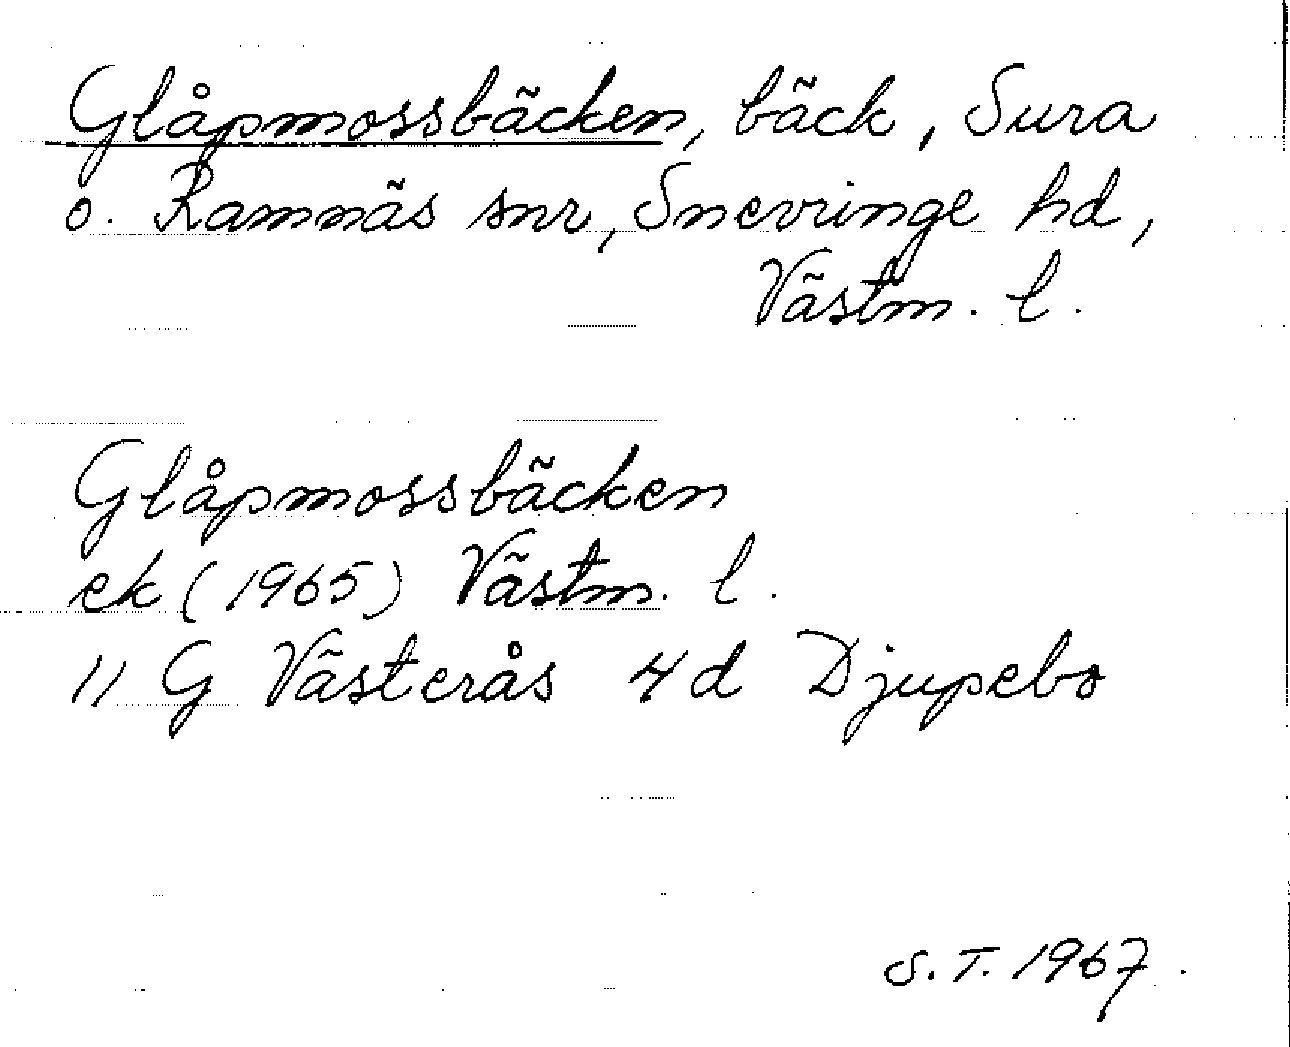 Glåpmossbäcken, bäck, Sura
o. Ramnäs snr, Snevringe hd,
Västm. l.
Glåpmossbäcken
ek (1965) Västm. l.
11 G Västerås 4d Djupebo
S.T. 1967.